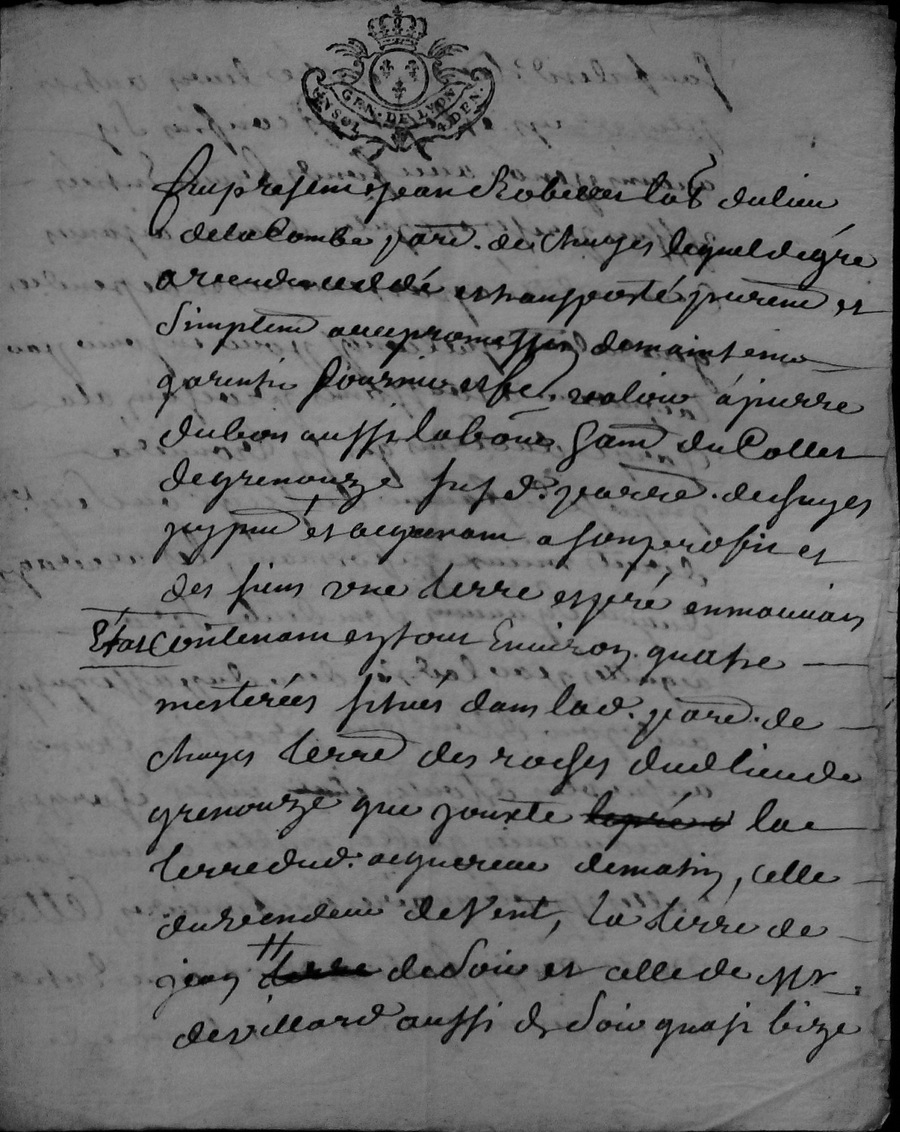 GEN. DE LYON
UN SOL 4 DEN.
fut present jean Robert lab dulieu
delaCombe paro. de Chuyes lequel degré
a vendu cedé et transporté purem et
simplem avec promission demaintenir
garentir fournir et fe. valoir à pierre
dubois aussi labour du Collet
degrenouze susd. parro. dechuyes
pnt et acquerant a son profit et
des siens une terre et pré enmauvais
Etat Contenant en tout Environ quatre
mesterées situés dans lad. paro. de
chuyes terre des roches dud lieu de
grenouze que jouxte lepré la
terre dud. acquereur dematin, celle
du vendeur de Vent, la terre de
jean terre de Soir et celle de Mr.
devillard aussi de Soir quasi bize